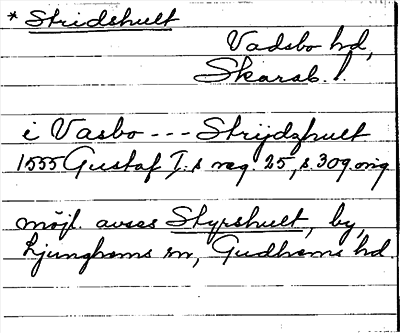 * Stridshult
Vadsbo hd,
Skarab. l.
i Vasbo --- Strijdzhult
1555 Gustaf I:s reg. 25, s. 309 orig.
möjl. avses Styrshult, by,
Ljunghems sn, Gudhems hd.